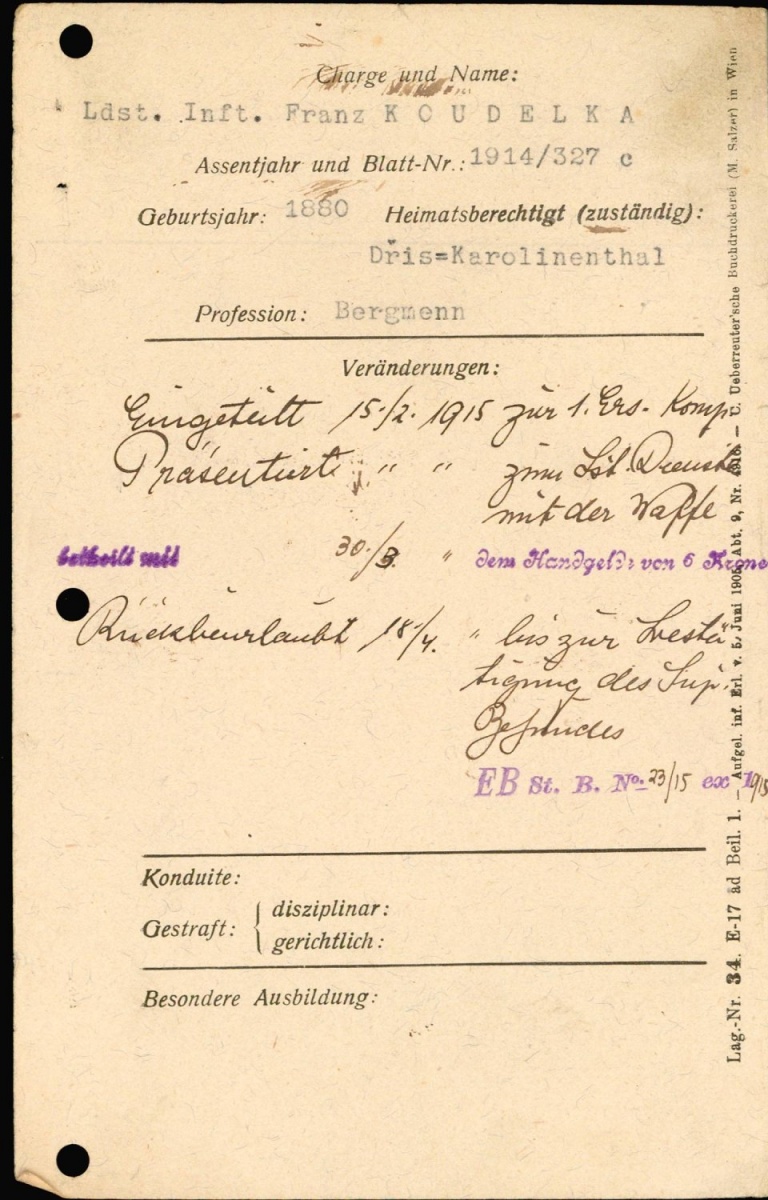 Charge und Name:
Ldst. Inft. Franz KOUDELKA
Assentjahr und Blatt-Nr.: 1914/327 c
Geburtsjahr: 1880 Heimatsberechtigt (zuständig):
Dřis=Karolinenthal
Profession: Bergmenn
Veränderungen:
Eingeteilt 15./2. 1915 zur 1. Ers. Komp
Präsentiert " " zum Lst. Dienste
mit der Waffe
betheilt mit 30./3. " dem Handgelde von 6 Krone
Rückbeurlaubt 18/4. " bis zur Bestä-
tigung des Sup.
Befundes
EB St. B. No. 23/15 ex 1915
Konduite:
Gestraft: { disziplinar:
gerichtlich:
Besondere Ausbildung:
Lag.-Nr. 34. E-17 ad Beil. 1. — Aufgel. inf. Erl. v. 5. Juni 1905, Abt. 9, Nr. — C. Ueberreuter'sche Buchdruckerei (M. Salzer) in Wien